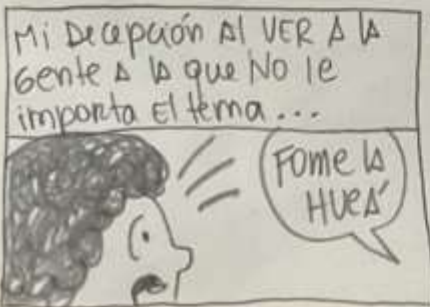 Mi Decepción Al VER A lA
Gente A lA que No le
importa El tema...
FOME lA
HUEÁ